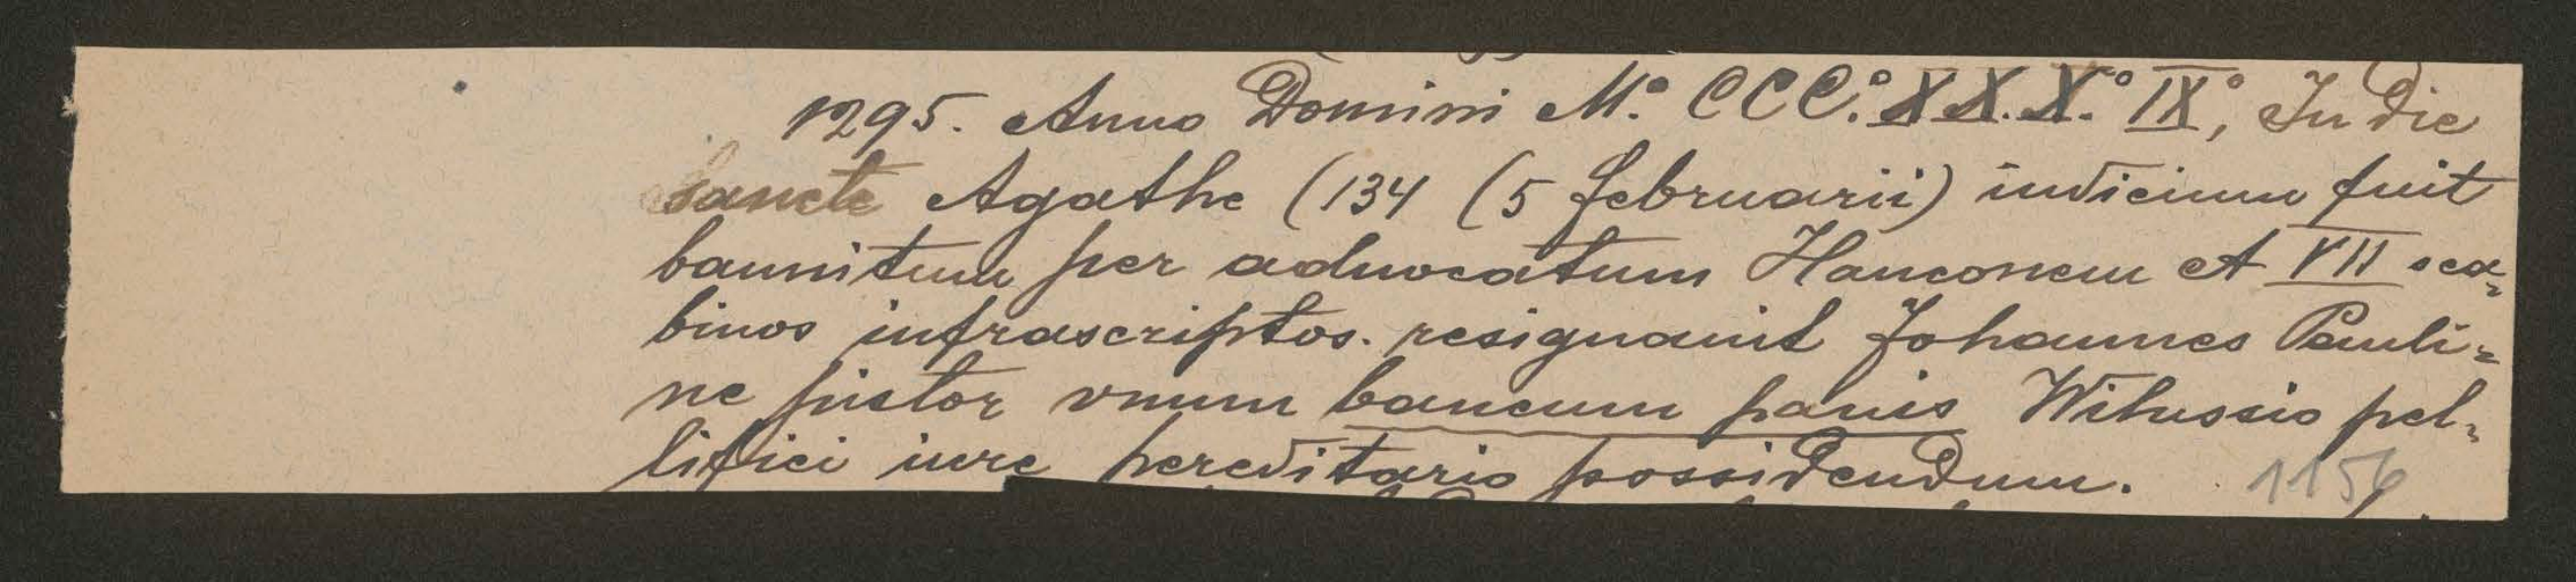 1295. Anno Domini M.º CCC.º XXX.º IX.º, In die
sancte Agathe (134 (5 februarii) iudicium fuit
bannitum per aduocatum Hanconem et VII sca=
binos infrascriptos. resignauit Johannes Pauli=
ne pistor vnum bancum panis Wilussio pel=
lifici iure hereditario possidendum. 1156